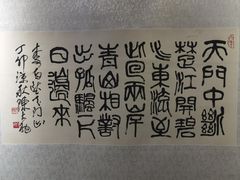 天門中斷
楚江開碧
水東流至
此回兩岸
青山相對
出孤帆一片
日邊來
李白望天門山
丁卯深秋